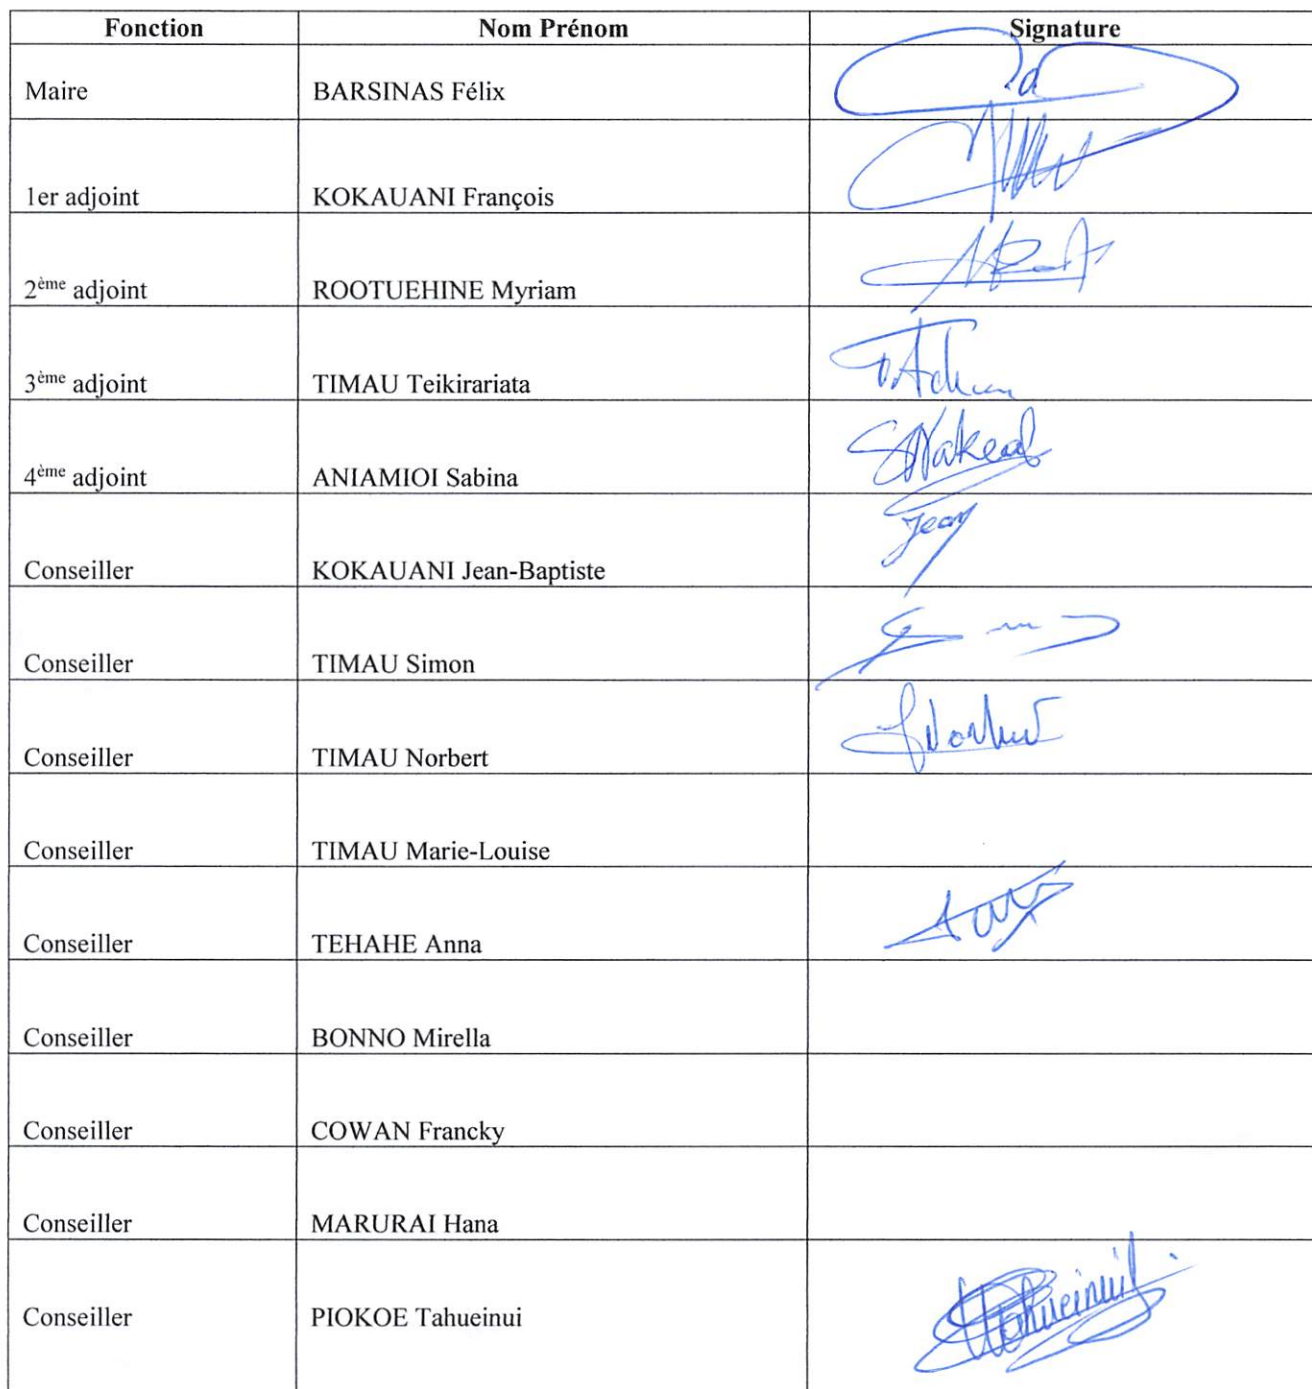 Fonction Nom Prénom Signature
Maire BARSINAS Félix
1er adjoint KOKAUANI François
2ème adjoint ROOTUEHINE Myriam
3ème adjoint TIMAU Teikirariata
4ème adjoint ANIAMIOI Sabina
Conseiller KOKAUANI Jean-Baptiste Jean
Conseiller TIMAU Simon
Conseiller TIMAU Norbert
Conseiller TIMAU Marie-Louise
Conseiller TEHAHE Anna
Conseiller BONNO Mirella
Conseiller COWAN Francky
Conseiller MARURAI Hana
Conseiller PIOKOE Tahueinui